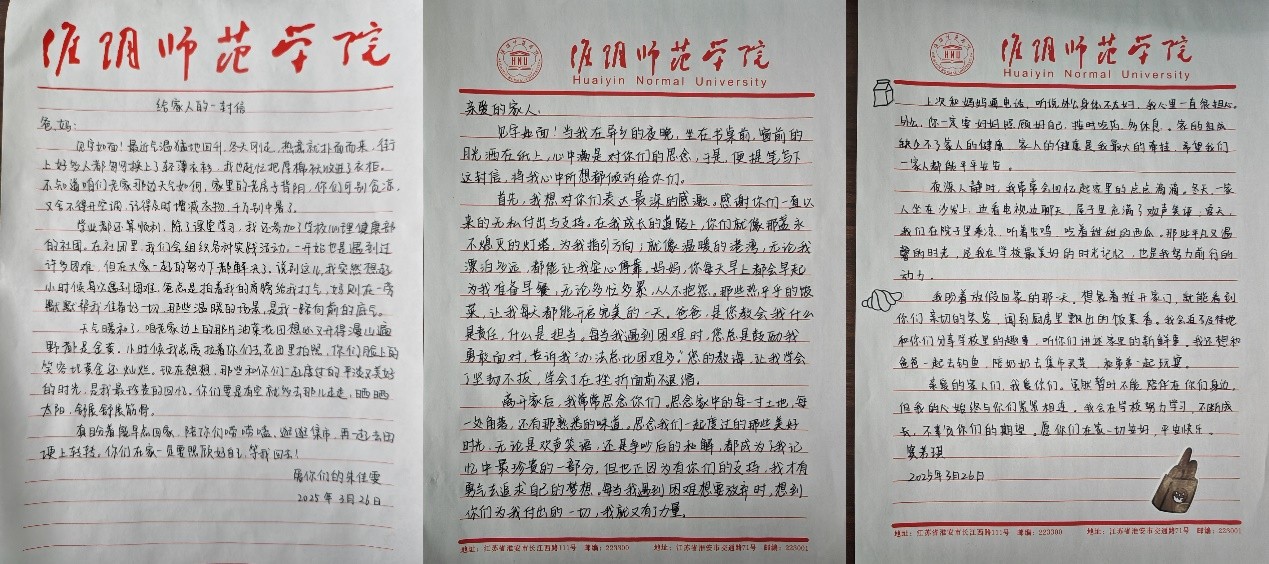 淮阴师范学院
给家人的一封信
爸、妈:
见字如面!最近气温猛地回升,冬天刚过,热意就扑面而来,街
上好多人都匆匆换上了轻薄衣衫,我也赶忙把厚棉袄收进了衣柜。
不知道咱们老家那边天气如何,家里的老房子背阴,你们可别贪凉,
又舍不得开空调,记得及时增减衣物,千万别中暑了。
学业都还算顺利,除了课堂学习,我还参加了学校心理健康部
的社团。在社团里,我们会组织各种实践活动。一开始也是遇到过
许多困难,但在大家一起的努力下都解决了。说到这儿,我突然想起
小时候每次遇到困难,爸总是拍着我的肩膀给我打气,妈则在一旁
默默帮我准备好一切,那些温暖的场景,是我一路向前的底气。
天气暖和了,咱老家边上的那片油菜花田想必又开得漫山遍
野都是金黄。小时候我总爱拉着你们去花田里拍照,你们脸上的
笑容比黄金还灿烂。现在想想,那些和你们一起度过的平淡又美好
的时光,是我最珍贵的回忆。你们要是有空就多去那儿走走,晒晒
太阳,舒展舒展筋骨。
盼着能早点回家,陪你们唠唠嗑,逛逛集市,再一起去田
埂上转转。你们在家一定要照顾好自己,等我回去!
爱你们的朱佳雯
2025年3月26日
淮阴师范学院
HNU
Huaiyin Normal University
亲爱的家人:
见字如面!当我在异乡的夜晚,坐在书桌前,窗前的
月光洒在纸上,心中满是对你们的思念,于是,便提笔写下
这封信,将我心中所想都倾诉给你们。
首先,我想对你们表达最深的感激。感谢你们一直以
来的无私付出与支持,在我成长的道路上,你们就像那盏永
不熄灭的灯塔,为我指引方向;就像温暖的港湾,无论我
漂泊多远,都能让我安心停靠。妈妈,你每天早上都会早起
为我准备早餐,无论多忙多累,从不抱怨,那些热乎乎的饭
菜,让我每天都能开启完美的一天。爸爸,是您教会我什么
是责任,什么是担当。每当我遇到困难时,您总是鼓励我
勇敢面对,告诉我“办法总比困难多。”您的教诲,让我学会
了坚韧不拔,学会了在挫折面前不退缩。
离开家后,我常常思念你们。思念家中的每一寸土地,每一
处角落,还有那熟悉的味道。思念我们一起度过的那些美好
时光,无论是欢声笑语,还是争吵后的和解,都成为了我记
忆中最珍贵的一部分。但也正因为有你们的支持,我才有
勇气去追求自己的梦想。每当我遇到困难想要放弃时,想到
你们为我付出的一切,我就又有了力量。
地址:江苏省淮安市长江西路111号 邮编:223300 地址:江苏省淮安市交通路71号 邮编:223001
淮阴师范学院
HNU
Huaiyin Normal University
上次和妈妈通电话,听说外公身体不太好,我心里一直很担心。
外公,你一定要好好照顾好自己,按时吃药,多休息。家的组成
缺少不了家人的健康,家人的健康是我最大的牵挂,希望我们
一家人都能平平安安。
夜深人静时,我常常会回忆起家里的点点滴滴。冬天,一家
人坐在沙发上,边看电视边聊天,屋子里充满了欢声笑语;夏天,
我们在院子里乘凉,听着虫鸣,吃着甜甜的西瓜,那些平凡又温
馨的时光,是我在学校最美好的时光记忆,也是我努力前行的
动力。
我盼着放假回家的那一天。想象着推开家门,就能看到
你们亲切的笑容,闻到厨房里飘出的饭菜香。我会迫不及待地
和你们分享学校里的趣事,听你们讲述家里的新鲜事。我还想和
爸爸一起去钓鱼,陪奶奶去集市买菜,和弟弟一起玩耍。
亲爱的家人们,我爱你们。虽然暂时不能陪伴在你们身边,
但我的心始终与你们紧紧相连。我会在学校努力学习,不断成
长,不辜负你们的期望。愿你们在家一切安好,平安快乐。
2025年3月26日
地址:江苏省淮安市长江西路111号 邮编:223300 地址:江苏省淮安市交通路71号 邮编:223001